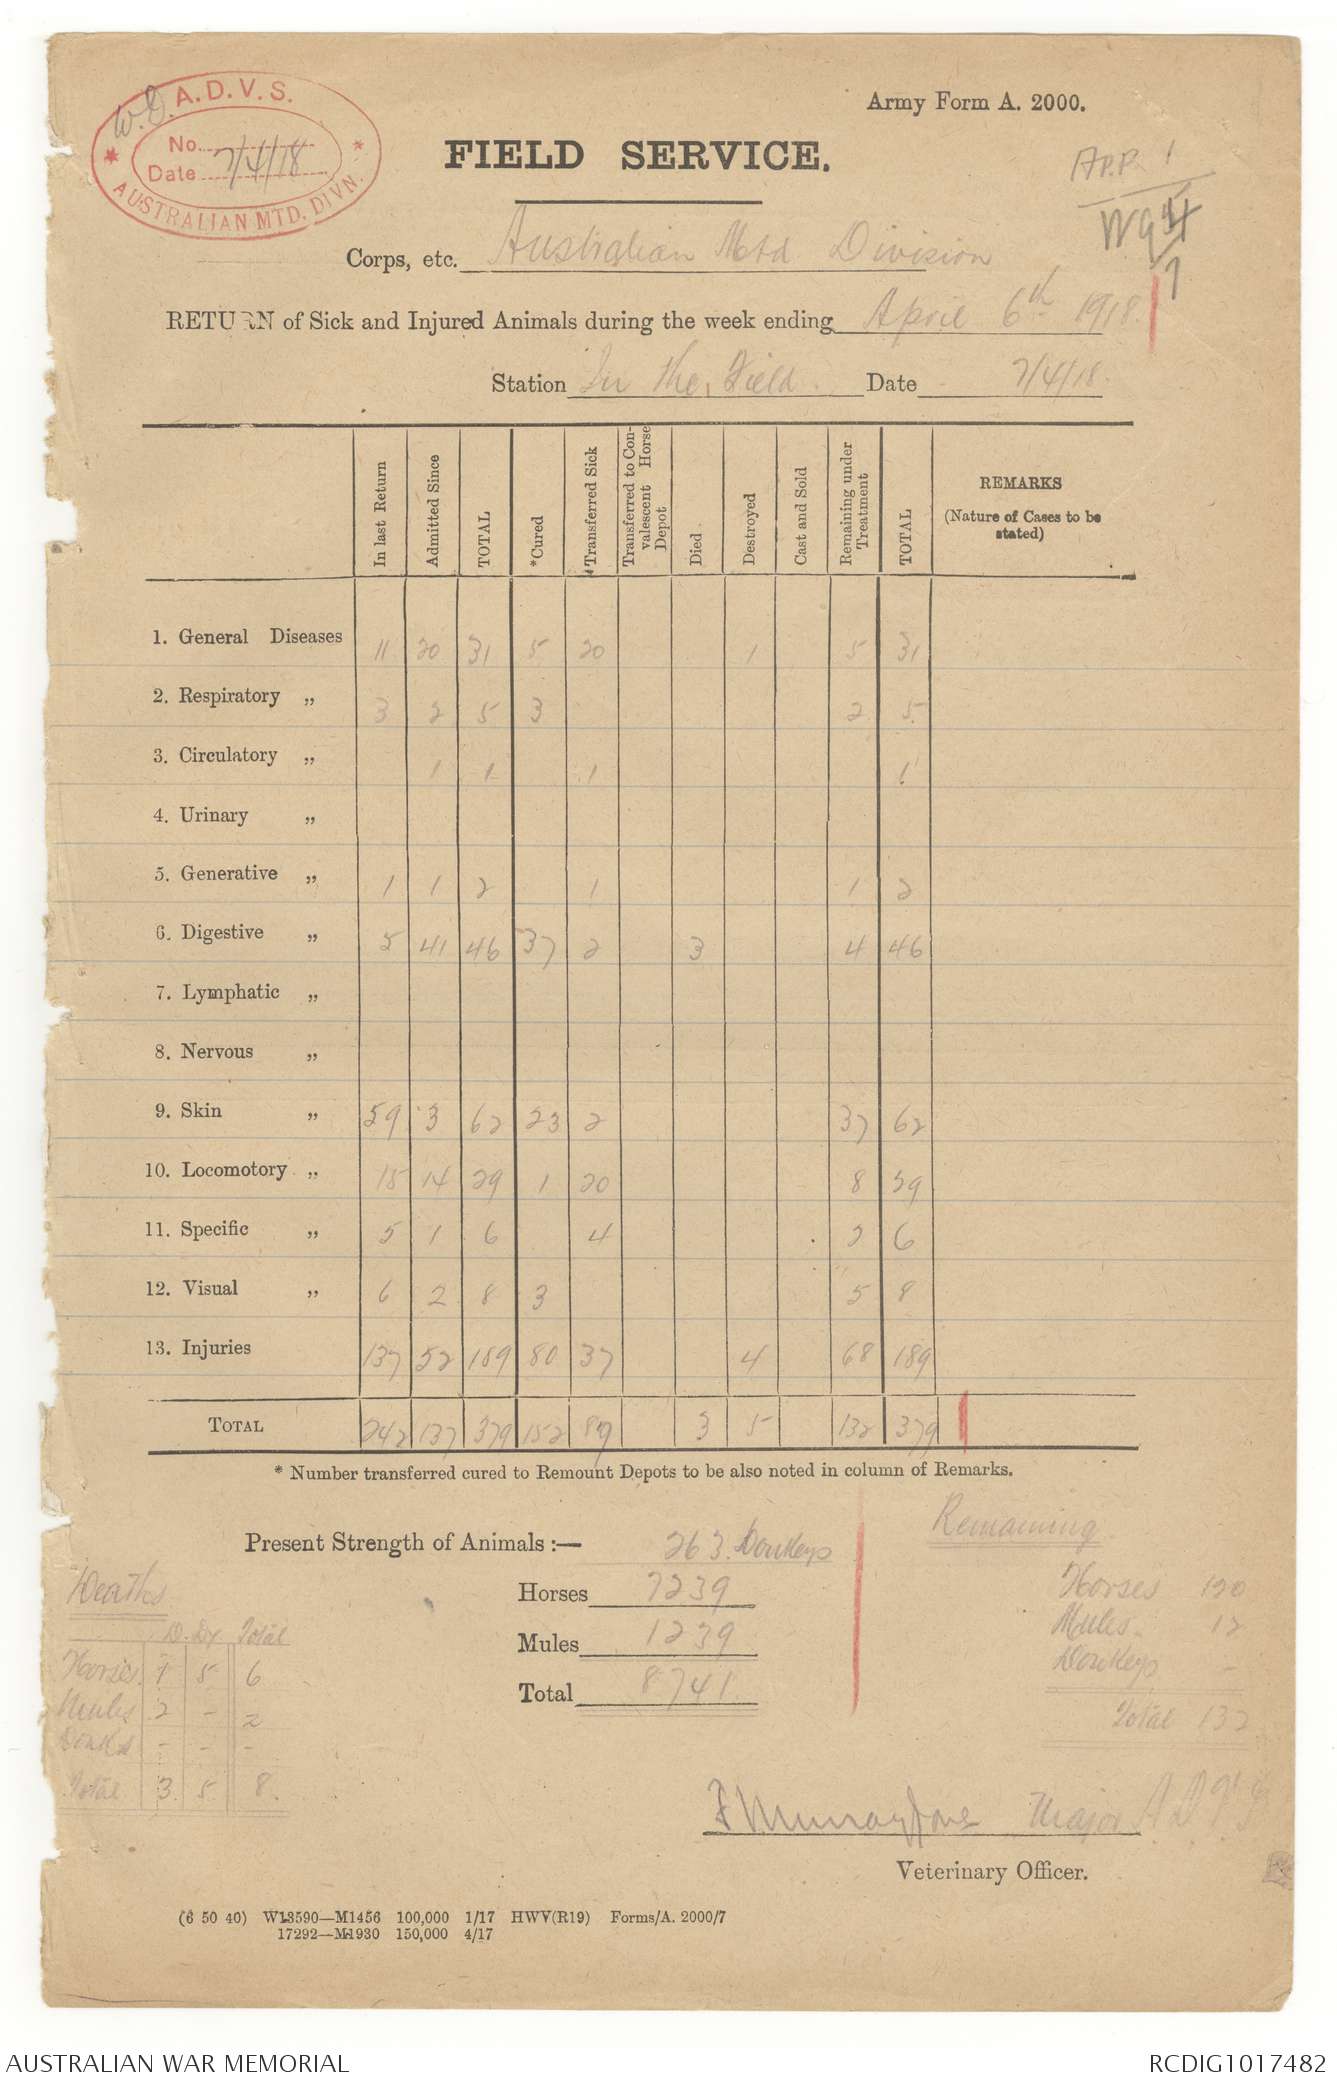 W.D. A.D.V.S.
No.
Date 7/4/18
AUSTRALIAN MTD. DIVN.
Army Form A. 2000.
FIELD SERVICE.
App. 1
Corps, etc. Australian Mtd Division
RETURN of Sick and Injured Animals during the week ending April 6th 1918.
Station In the Field. Date 7/4/18
In last Return | Admitted Since | TOTAL | *Cured | Transferred Sick | Transferred to Convalescent Horse Depot | Died | Destroyed | Cast and Sold | Remaining under Treatment | TOTAL | REMARKS (Nature of Cases to be stated)
1. General Diseases | 11 | 20 | 31 | 5 | 20 | | | 1 | | 5 | 31
2. Respiratory „ | 3 | 2 | 5 | 3 | | | | | | 2 | 5
3. Circulatory „ | | 1 | 1 | | 1 | | | | | | 1
4. Urinary „
5. Generative „ | 1 | 1 | 2 | | 1 | | | | | 1 | 2
6. Digestive „ | 5 | 41 | 46 | 37 | 2 | | 3 | | | 4 | 46
7. Lymphatic „
8. Nervous „
9. Skin „ | 59 | 3 | 62 | 23 | 2 | | | | | 37 | 62
10. Locomotory „ | 15 | 14 | 29 | 1 | 20 | | | | | 8 | 29
11. Specific „ | 5 | 1 | 6 | | 4 | | | | | 2 | 6
12. Visual „ | 6 | 2 | 8 | 3 | | | | | | 5 | 8
13. Injuries | 137 | 52 | 189 | 80 | 37 | | | 4 | | 68 | 189
TOTAL | 242 | 137 | 379 | 152 | 87 | | 3 | 5 | | 132 | 379
* Number transferred cured to Remount Depots to be also noted in column of Remarks.
Present Strength of Animals :— 263 Donkeys
Horses 7239
Mules 1239
Total 8741
Remaining
Horses 120
Mules. 12
Donkeys -
Total 132
Deaths
D. Dy Total
Horses 1 5 6
Mules 2 - 2
Donks - - -
Total 3 5 8
F Murray Jones Major
Veterinary Officer.
(6 50 40) W13590—M1456 100,000 1/17 HWV(R19) Forms/A. 2000/7
17292—M1930 150,000 4/17
AUSTRALIAN WAR MEMORIAL
RCDIG1017482